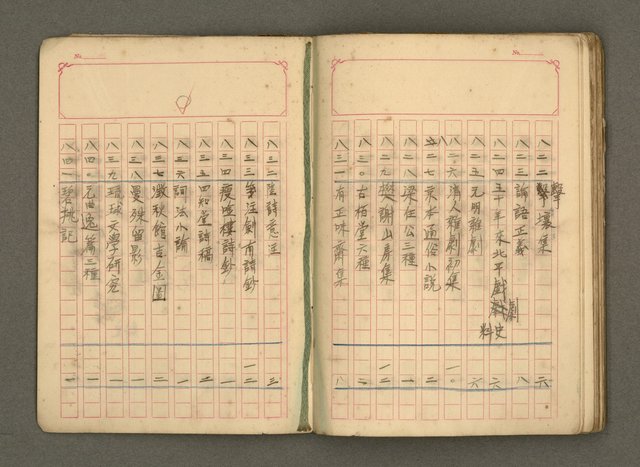 No.
八二二 擊壤集 六
八二三 論語正義 八
八二四 五十年來北平戲劇史料 六
八二五 元明雜劇 六
八二六 清人雜劇初集 一〇
八二七 京本通俗小說 二
八二八 梁任公三種 一
八二九 樊謝山房集 一二
八三〇 古柏堂六種 二
八三一 有正味齋集 八
No.
八三二 陸詩意注 三
八三三 箋注劍南詩鈔 一二
八三四 瘦唫樓詩鈔 一
八三五 四知堂詩稿 二
八三六 詞法小論 一
八三七 澂秋館吉金圖 二
八三八 曼殊留影 一
八三九 琉球文學研究 一
八四〇 元曲逸篇三種 一
八四一 碧桃記 一